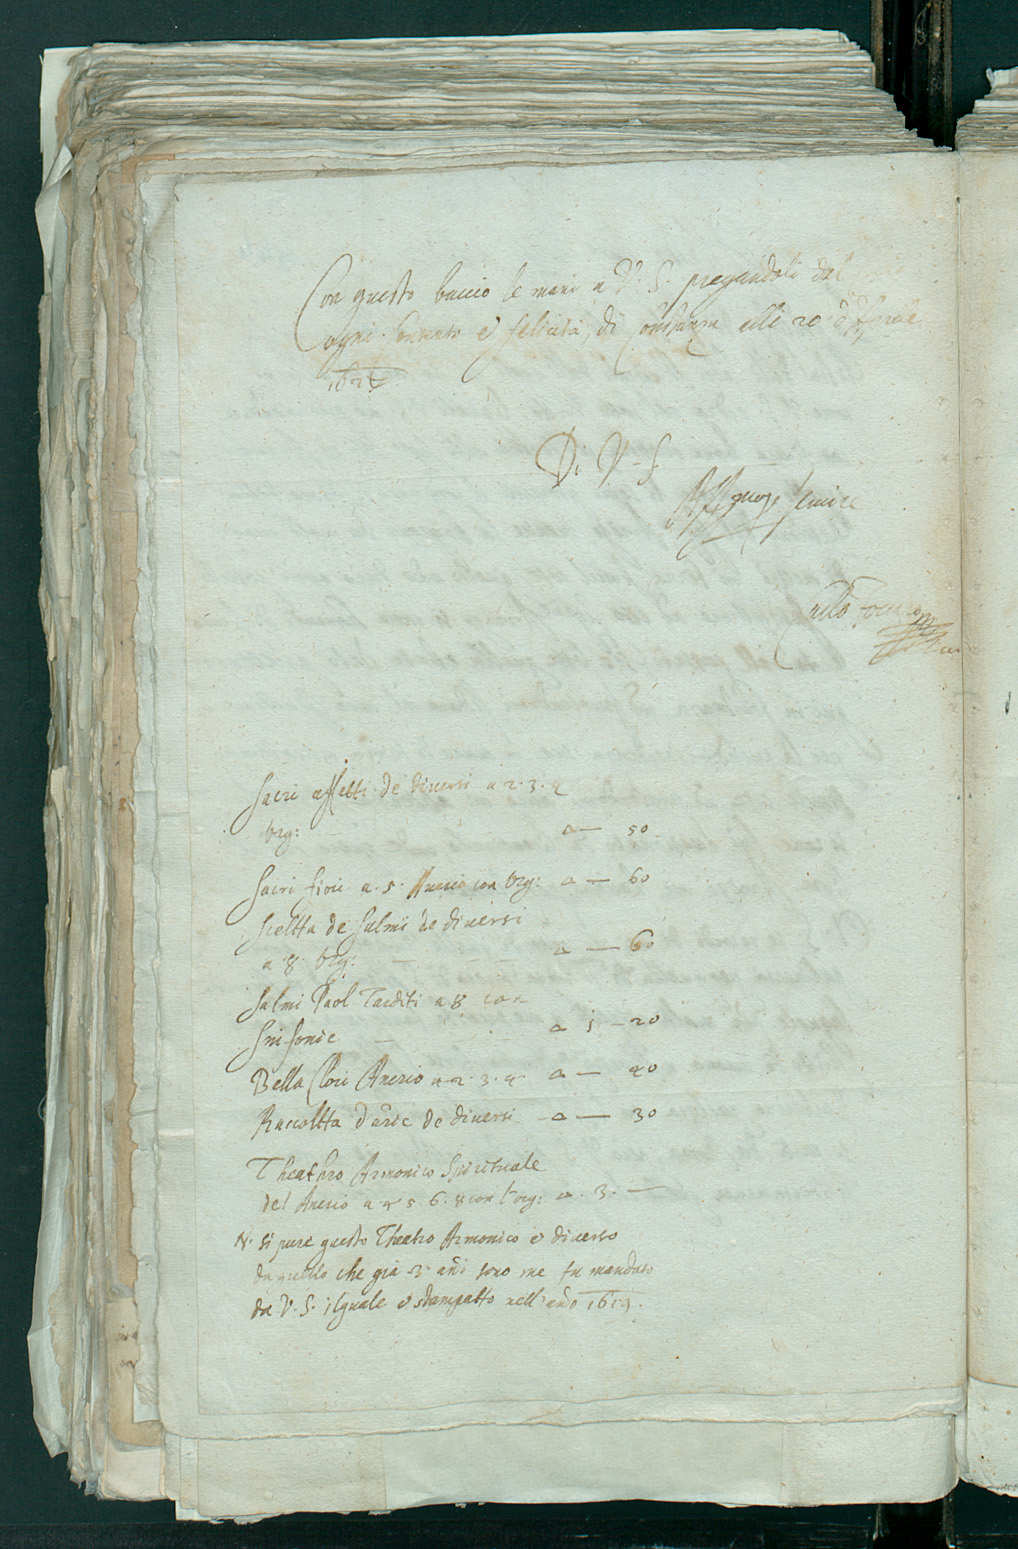 Con questo baccio le mani a V. S. pregandoli dal
ogni Contento e felicita, di Constanza alli 20 d' Aprile
162
Di V. S.
Aff. Servire
Carlo
Sacri affetti de diversi a 2. 3. 4
Org: a — 50
Sacri fiori a. 5. Anerio con Org: a — 60
Sceltta de Salmi de diversi
a 8 Org: — a — 60
Salmi Paol Tarditi a 8 con
Sinfonie — a 1 - 20
Bella Clori Anerio a 2. 3. 4 a — 40
Raccoltta d'arie de diversi — a — 30
Theathro Armonico Spirituale
del Anerio a 4 5. 6. 8 con l'org: a. 3. —
N. si pure questo Theatro Armonico e diverso
da quello che gia 3 añi sono me fu mandato
da V. S. ilquale e stampatto nell' año 1619.